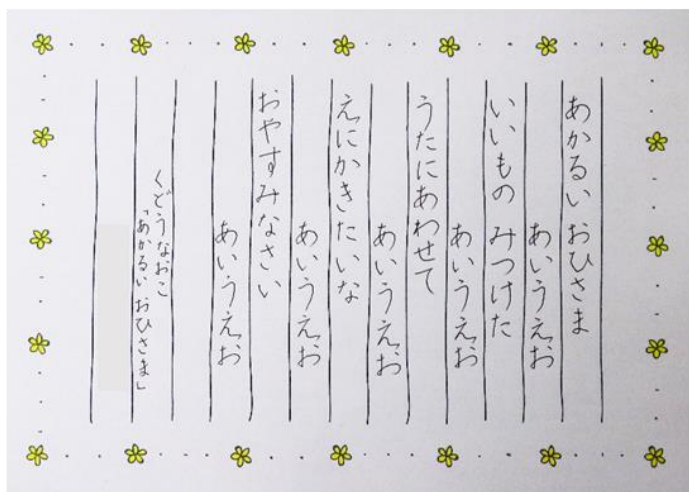 あかるい おひさま
あいうえお
いいもの みつけた
あいうえお
うたにあわせて
あいうえお
えにかきたいな
あいうえお
おやすみなさい
あいうえお
くどうなおこ
「あかるい おひさま」